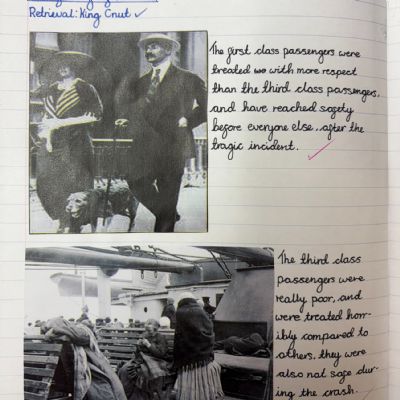 Retrieval: King Cnut
The first class passengers were
treated with more respect
than the third class passengers,
and have reached safety
before everyone else.. after the
tragic incident.
The third class
passengers were
really poor, and
were treated horr-
ibly compared to
others. they were
also not safe dur-
ing the crash.